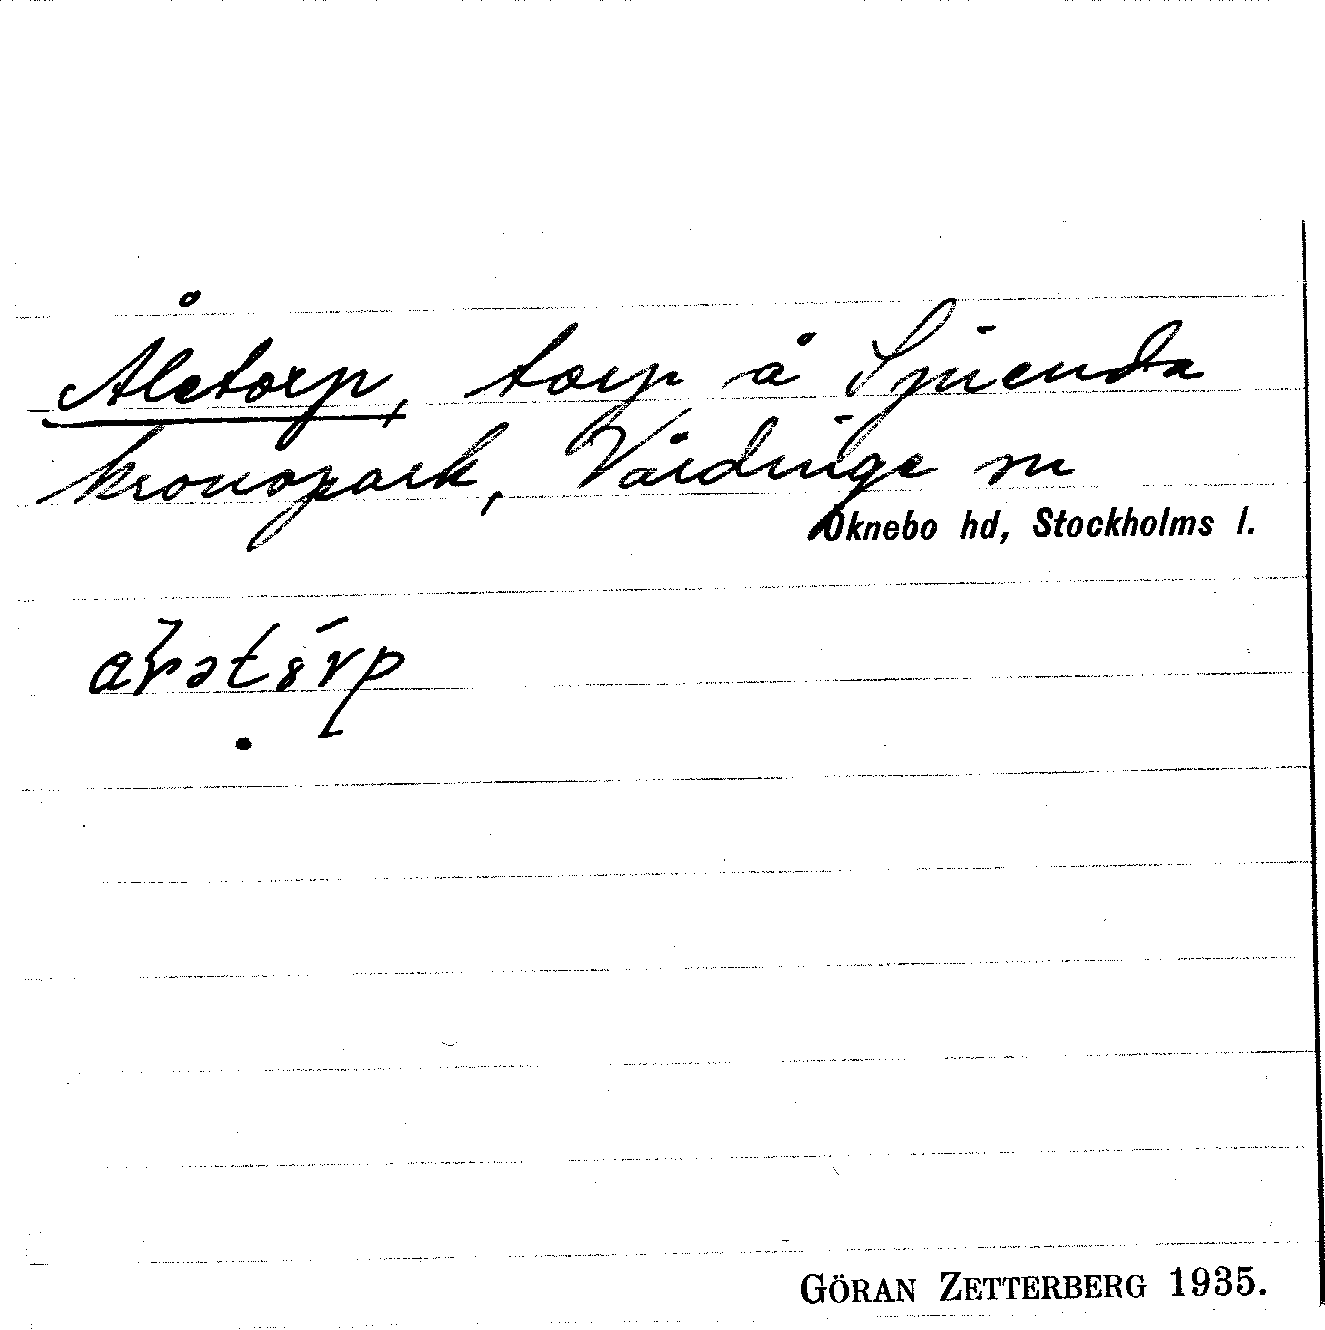 Åletorp, torp å Spienda
kronopark, Vårdinge sn
Öknebo hd, Stockholms l.
GÖRAN ZETTERBERG 1935.